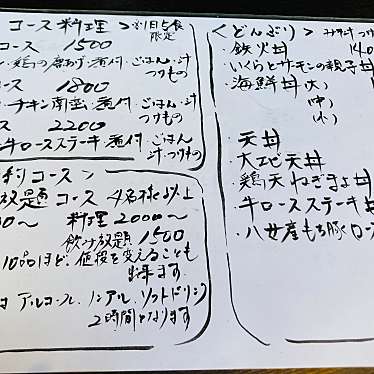 コース料理 > ※1日5食限定
コース 1500
・鶏の唐あげ・煮付・ごはん・汁
つけもの
コース 1800
チキン南蛮・煮付・ごはん・汁
つけもの
ス 2200
牛ロースステーキ・煮付・ごはん
汁・つけもの
コース>
放題コース 4名様以上
料理 2000〜
飲み放題 1500
10品ほど、値段を変えることも
出来ます
アルコール、ノンアル、ソフトドリンク
2時間となります
<どんぶり>
・鉄火丼
・いくらとサーモンの親子丼
・海鮮丼 (大)
(中)
(小)
・天丼
・大地天丼
・鶏天ねぎま丼
・牛ロースステーキ丼
・八女産もち豚ロー